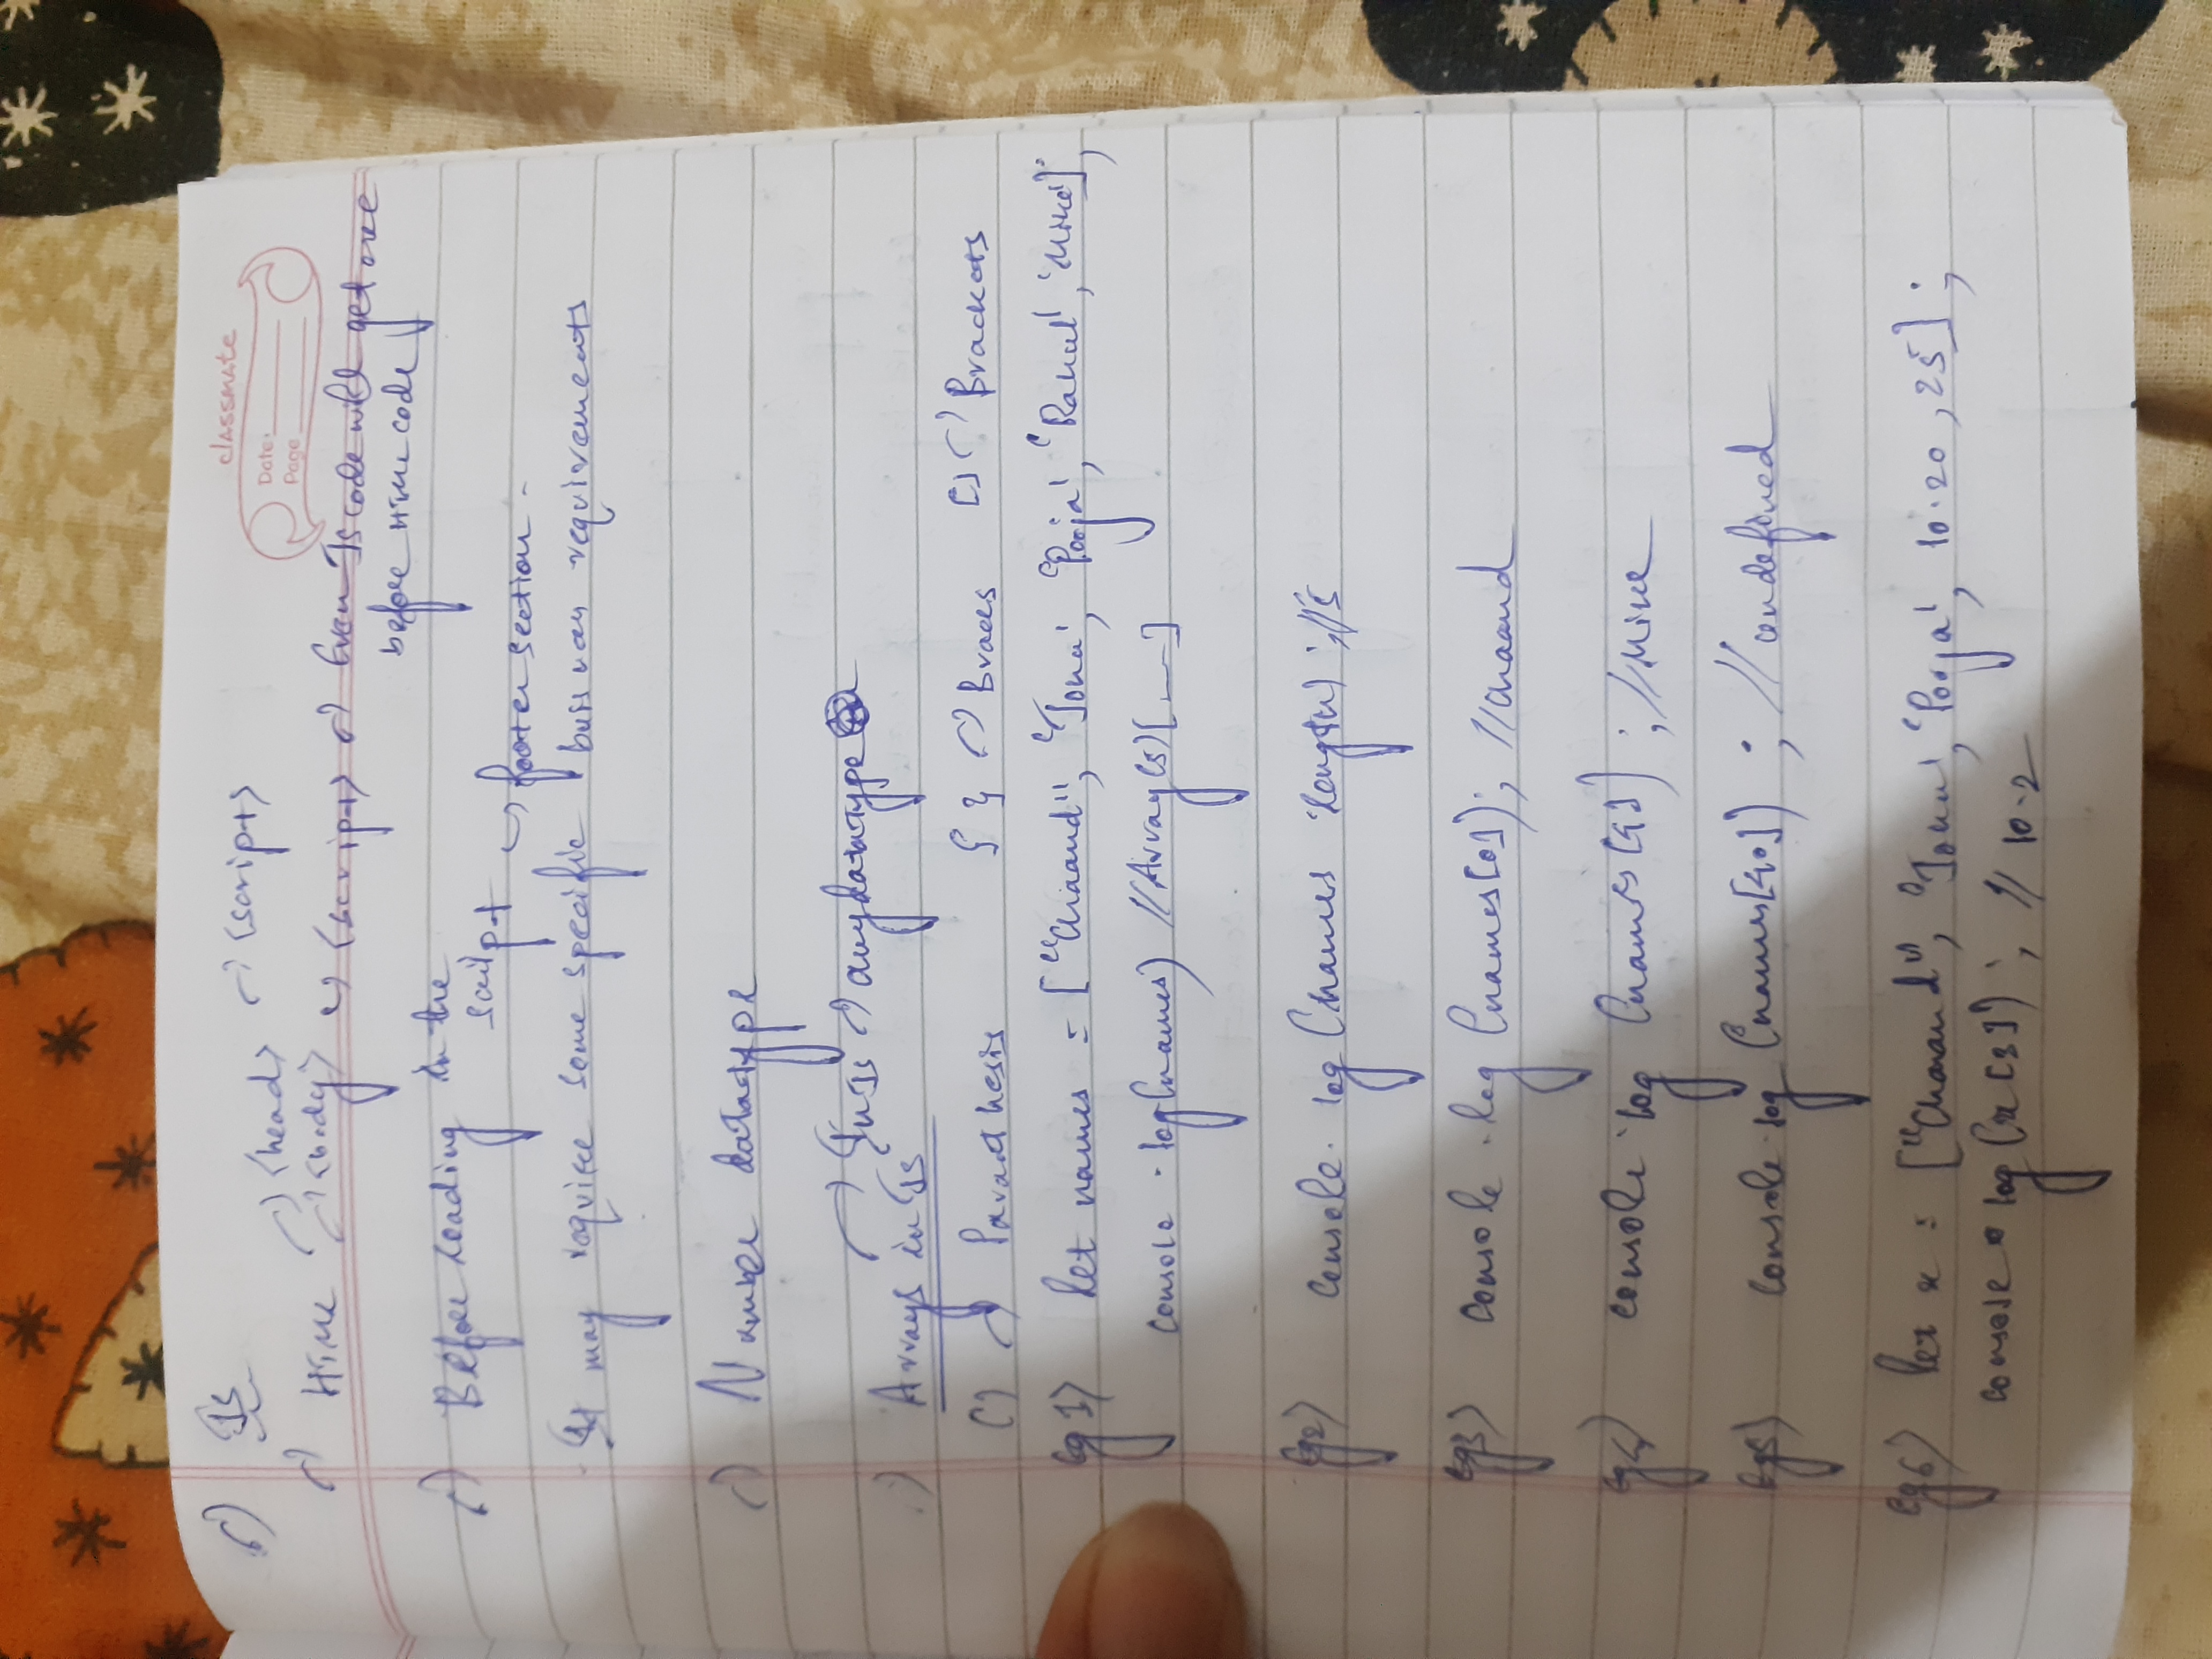 classmate
Date:
Page
JS
<head> <script>
HTML <body> <script> Even JS code will get exe
before HTML code
Before loading in the
script footer section -
It may require some specific requirements
Number datatype
In JS any datatype
Arrays in JS
() Paranthesis { } Braces [] Brackets
Eg 1) let names = ["Chaand", 'John', 'Pooja', 'Rahul', 'Mike'];
console.log(names) //Array(5)[ __ ]
Eg2) console.log(names.length); //5
Eg3) console.log(names[0]); //Chaand
Eg4) console.log(names[4]); //Mike
Eg5) console.log(names[40]); //undefined
Eg6) let x = ["Chaand", 'John', 'Pooja', 10.20, 25];
console.log(x[3]); // 10.2